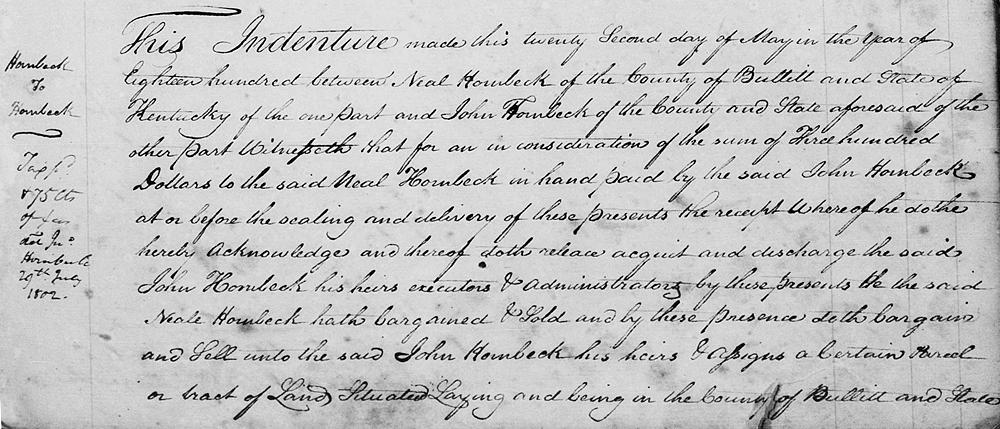 Hornbeck
To
Hornbeck
Tax pd
& 75 Cts
of fees
Del Jno
Hornbeck
29th July
1802.
This Indenture made this twenty Second day of May in the Year of
Eighteen hundred between Neal Hornbeck of the County of Bullitt and State of
Kentucky of the one part and John Hornbeck of the County and State aforesaid of the
other part Witnesseth that for an in consideration of the sum of Three hundred
Dollars to the said Neal Hornbeck in hand paid by the said John Hornbeck
at or before the sealing and delivery of these presents the receipt Whereof he dothe
hereby Acknowledge and thereof doth releace acquit and discharge the said
John Hornbeck his heirs executors & administrators by these presents He the said
Neale Hornbeck hath bargained & Sold and by these presence doth bargain
and Sell unto the said John Hornbeck his heirs & assigns a Certain Parcel
or tract of Land Situated Laying and being in the County of Bullitt and State